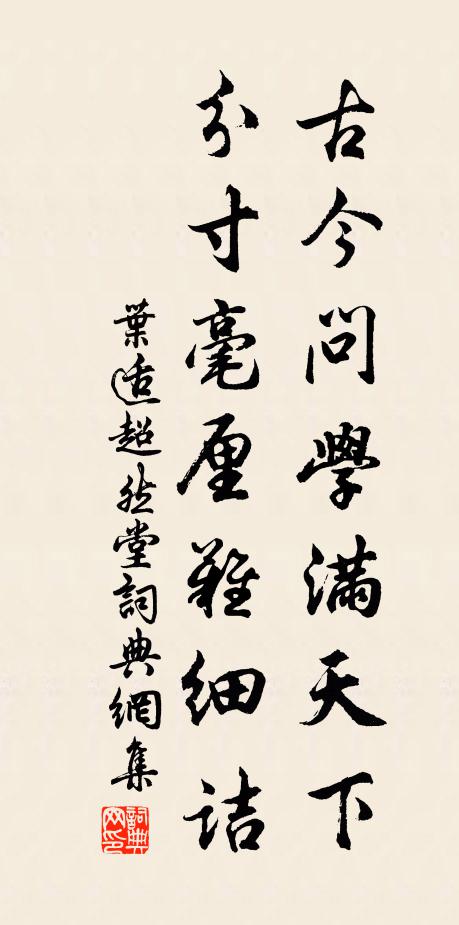 古今問學滿天下
分寸毫厘難細詰
葉适超然堂詞典網集
詞典網印